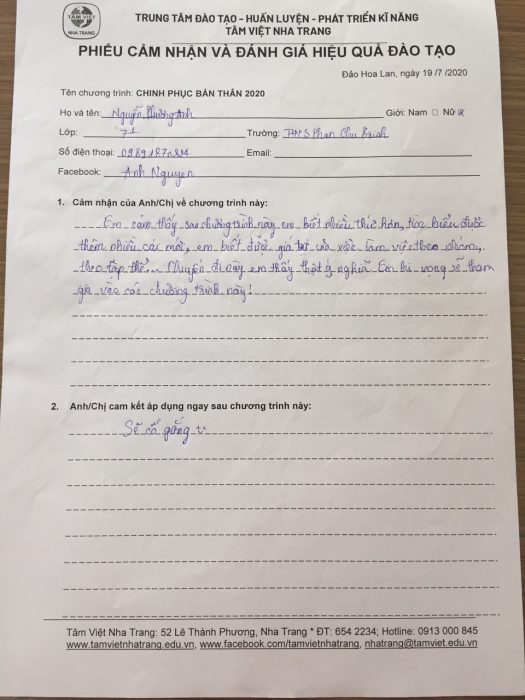 TÂM VIỆT
NHA TRANG
TRUNG TÂM ĐÀO TẠO - HUẤN LUYỆN - PHÁT TRIỂN KĨ NĂNG
TÂM VIỆT NHA TRANG
PHIẾU CẢM NHẬN VÀ ĐÁNH GIÁ HIỆU QUẢ ĐÀO TẠO
Đảo Hoa Lan, ngày 19/7/2020
Tên chương trình: CHINH PHỤC BẢN THÂN 2020
Họ và tên: Nguyễn Phương Anh Giới: Nam ☐ Nữ ☒
Lớp: 71 Trường: THCS Phan Chu Trinh
Số điện thoại: Email:
Facebook: Anh Nguyen
1. Cảm nhận của Anh/Chị về chương trình này:
Em cảm thấy sau chương trình này em biết nhiều thứ hơn, tìm hiểu được
thêm nhiều cái mới, em biết được giá trị của việc làm việc theo nhóm,
theo tập thể... Chuyến đi này em thấy thật ý nghĩa. Em hi vọng sẽ tham
gia vào các chương trình này!
2. Anh/Chị cam kết áp dụng ngay sau chương trình này:
Sẽ cố gắng
Tâm Việt Nha Trang: 52 Lê Thành Phương, Nha Trang * ĐT: 654 2234; Hotline: 0913 000 845
www.tamvietnhatrang.edu.vn, www.facebook.com/tamvietnhatrang, nhatrang@tamviet.edu.vn